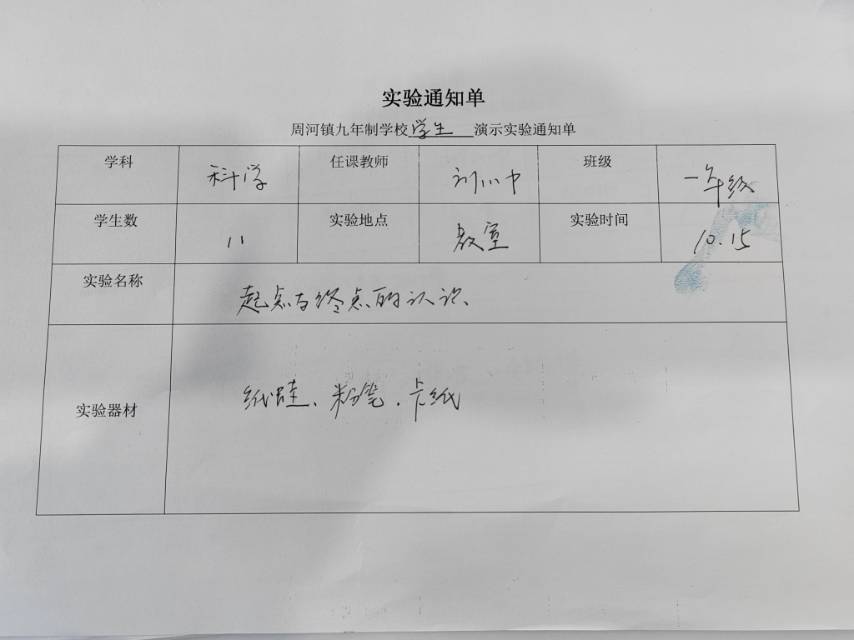 实验通知单
周河镇九年制学校学生演示实验通知单
学科 科学 任课教师 班级 一年级
学生数 11 实验地点 教室 实验时间 10.15
实验名称 起点与终点的认识
实验器材 纸蛙、粉笔、卡纸